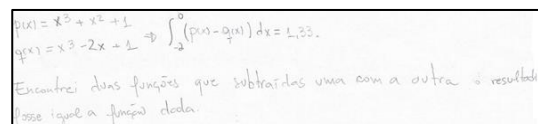 p(x) = x³ + x² + 1
q(x) = x³ - 2x + 1 ⇒ ∫₋₂⁰ (p(x) - q(x)) dx = 1,33.
Encontrei duas funções que subtraídas uma com a outra o resultado
fosse igual a função dada